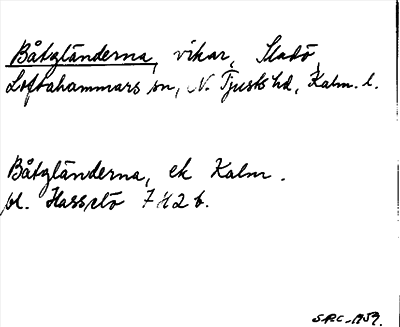 Båtgländerna, vikar, Sladö,
Loftahammars sn, N. Tjusts hd, Kalm. l.
Båtgländerna, ek Kalm.
bl. Hasselö 7 H 2 b.
SRC-1959.